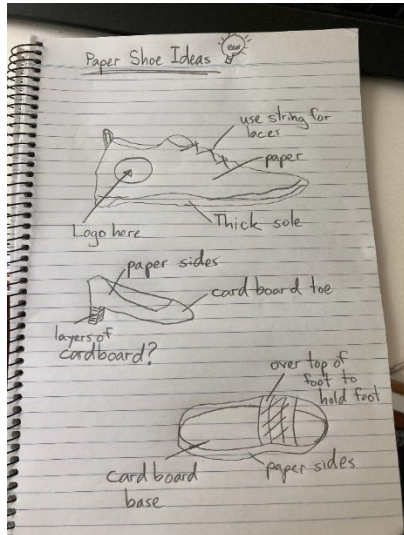 Paper Shoe Ideas
use string for
laces
paper
Logo here
Thick sole
paper sides
card board toe
layers of
cardboard?
over top of
foot to
hold foot
card board
base
paper sides